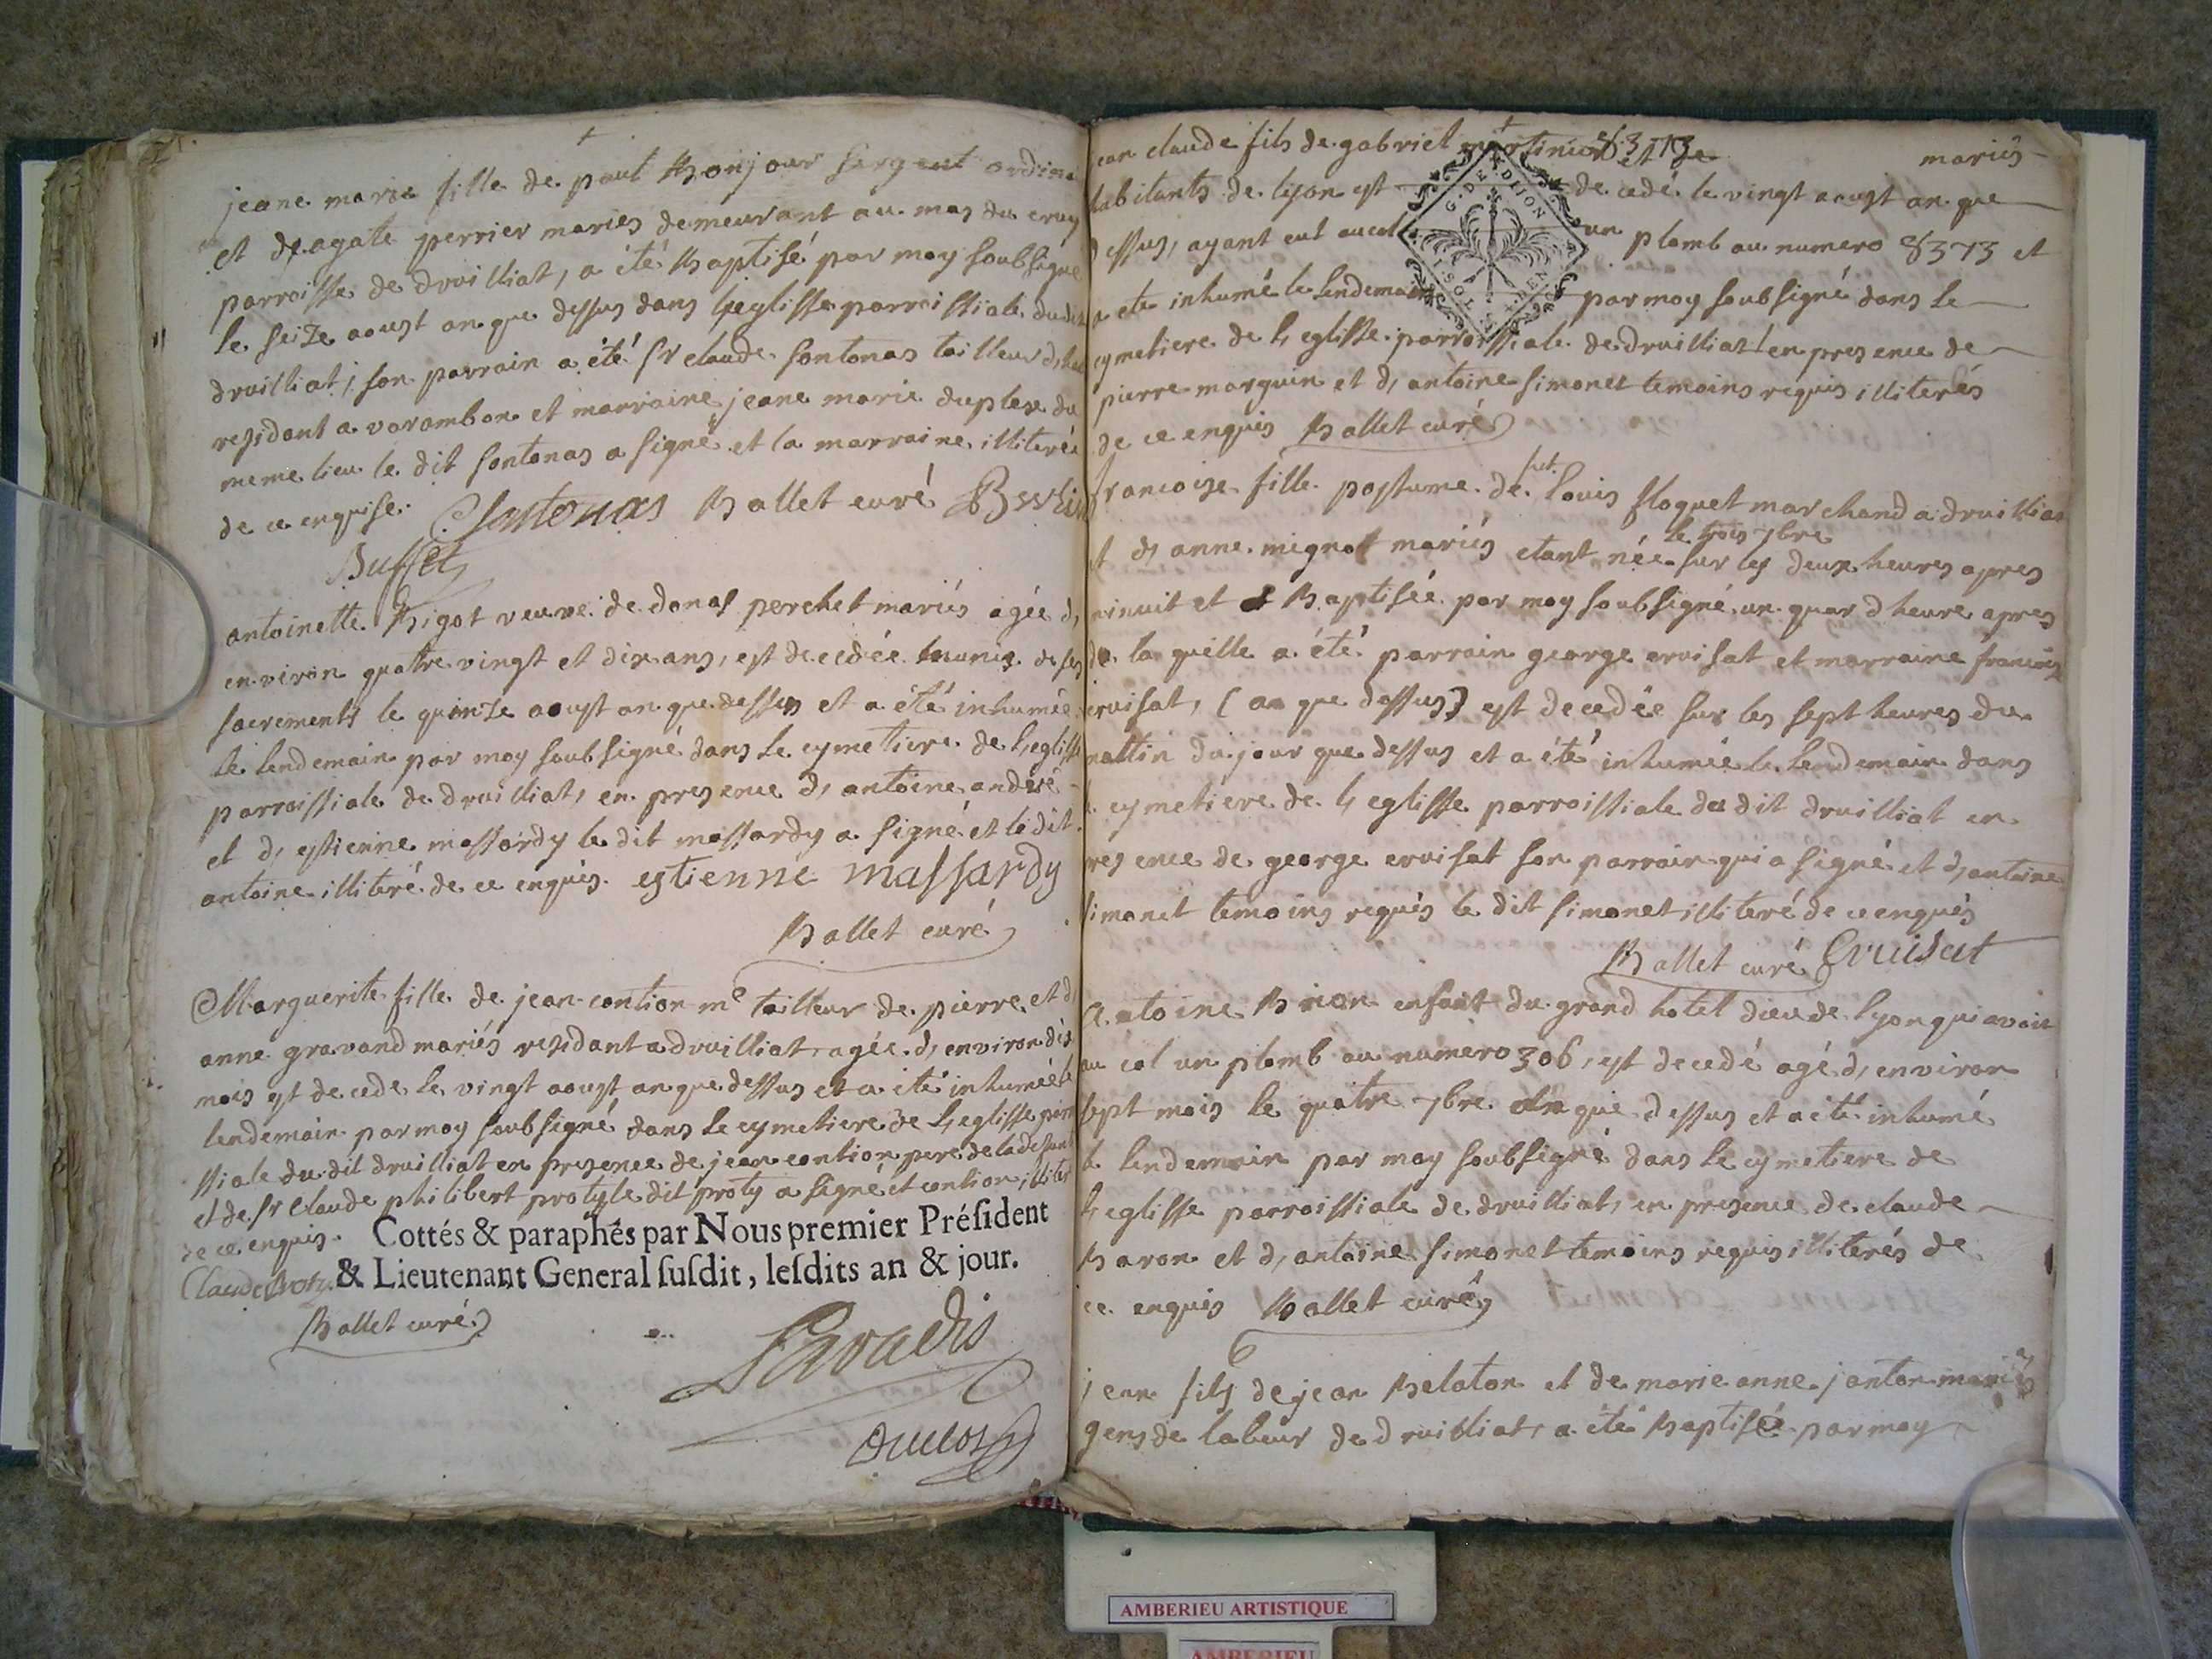 jeane marie fille de paul Bonjour sergent ordin
et de agate perrier mariés demeurant au mas du cruy
parroisse de druilliat, a été Baptisé par moy soubsigné
le seize aoust an que dessus dans l,eglisse parroissiale dudit
druilliat, son parrain a été sr claude fontonas tailleur d,ha
residant a varambon et marraine jeane marie duplex du
meme lieu le dit fontonas a signé et la marraine illiterée
de ce enquise. Cfontonas Ballet curé
Buffet
antoinette Bigot veuve de donas perchet mariés agée d,
environ quatre vingt et dix ans, est decedée munie de ses
sacrements le quinze aoust an que dessus et a été inhumée
le lendemain par moy soubsigné dans le cymetiere de l,eglisse
parroissiale de druilliat, en presence d, antoine andéré
et d, estienne massardy le dit massardy a signé et ledit
antoine illiteré de ce enquis. estienne massardy
Ballet curé
Marguerite fille de jean contion me tailleur de pierre et d
anne gravand mariés residant a druilliat, agée d, environ dix
mois est decede le vingt aoust an que dessus et a été inhumée le
lendemain par moy soubsigné dans le cymetiere de l,eglisse parroi
ssiale du dit druilliat en presence de jean contion pere de la defunt
et de sr Claude philibert proty le dit proty a signé et contion illiter
de ce enquis. Cottés & paraphés par Nous premier Préſident
Claude Proty. & Lieutenant General ſuſdit, leſdits an & jour.
Ballet curé
Duclos
jean claude fils de gabriel martinier et de mariés
8373
habitants de lyon est de cedé le vingt aoust an que
G. DE DIJON
dessus, ayant eut au col un plomb au numero 8373 et
a eté inhumé le lendemain par moy soubsigné dans le
cymetiere de l,eglisse parroissiale de druilliat en presence de
pierre marguin et d, antoine simonet temoins requis illiterés
de ce enquis Ballet curé
francoise fille postume de fut louis floquet marchand a druilliat
et d, anne mignot mariés etant née le trois 7bre sur les deux heures apres
minuit et Baptisée par moy soubsigné un quar d heure apres
de la quelle a été parrain george cruisat et marraine francoise
cruisat, (an que dessus) est decedée sur les sept heures du
mattin du jour que dessus et a été inhumée le lendemain dans
le cymetiere de l,eglisse parroissiale du dit druilliat en
presence de george cruisat son parrain qui a signé et d, antoine
simonet temoins requis le dit simonet illiteré de ce enquis
Ballet curé Cruisat
Antoine Binon enfant du grand hotel dieu de lyon qui avoit
au col un plomb au numero 306, est decedé agé d, environ
sept mois le quatre 7bre an que dessus et a été inhumé
le lendemain par moy soubsigné dans le cymetiere de
l,eglisse parroissiale de druilliat, en presence de claude
Baron et d, antoine simonet temoins requis illiterés de
ce enquis Ballet curé
jean fils de jean Belaton et de marie anne janton mariés
gens de labeur de druilliat, a été Baptisé par moy
AMBERIEU ARTISTIQUE
AMBERIEU